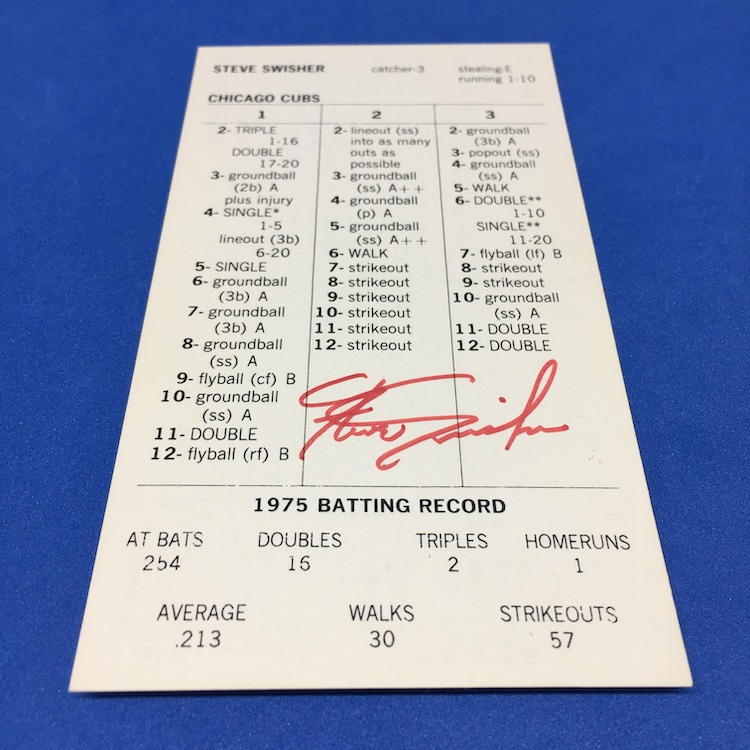 STEVE SWISHER catcher-3 stealing-E
running 1-10
CHICAGO CUBS
1 2 3
2- TRIPLE
1-16
DOUBLE
17-20
3- groundball
(2b) A
plus injury
4- SINGLE*
1-5
lineout (3b)
6-20
5- SINGLE
6- groundball
(3b) A
7- groundball
(3b) A
8- groundball
(ss) A
9- flyball (cf) B
10- groundball
(ss) A
11- DOUBLE
12- flyball (rf) B
2- lineout (ss)
into as many
outs as
possible
3- groundball
(ss) A++
4- groundball
(p) A
5- groundball
(ss) A++
6- WALK
7- strikeout
8- strikeout
9- strikeout
10- strikeout
11- strikeout
12- strikeout
2- groundball
(3b) A
3- popout (ss)
4- groundball
(ss) A
5- WALK
6- DOUBLE**
1-10
SINGLE**
11-20
7- flyball (lf) B
8- strikeout
9- strikeout
10- groundball
(ss) A
11- DOUBLE
12- DOUBLE
Steve Swisher
1975 BATTING RECORD
AT BATS DOUBLES TRIPLES HOMERUNS
254 16 2 1
AVERAGE WALKS STRIKEOUTS
.213 30 57